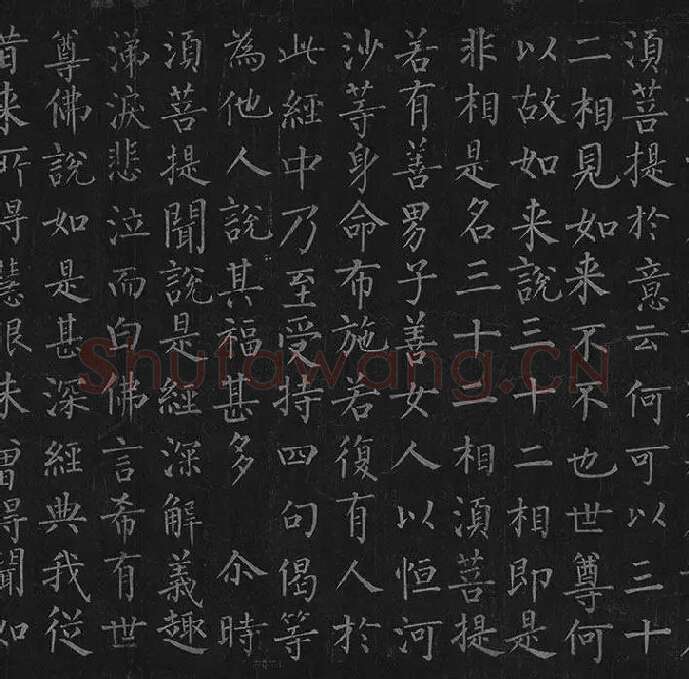 須菩提於意云何可以三十
二相見如来不不也世尊何
以故如来說三十二相即是
非相是名三十二相須菩提
若有善男子善女人以恒河
沙等身命布施若復有人於
此經中乃至受持四句偈等
為他人說其福甚多 尒時
須菩提聞說是經深解義趣
涕淚悲泣而白佛言希有世
尊佛說如是甚深經典我從
昔来所得慧眼未曾得聞如
Shufawang.CN